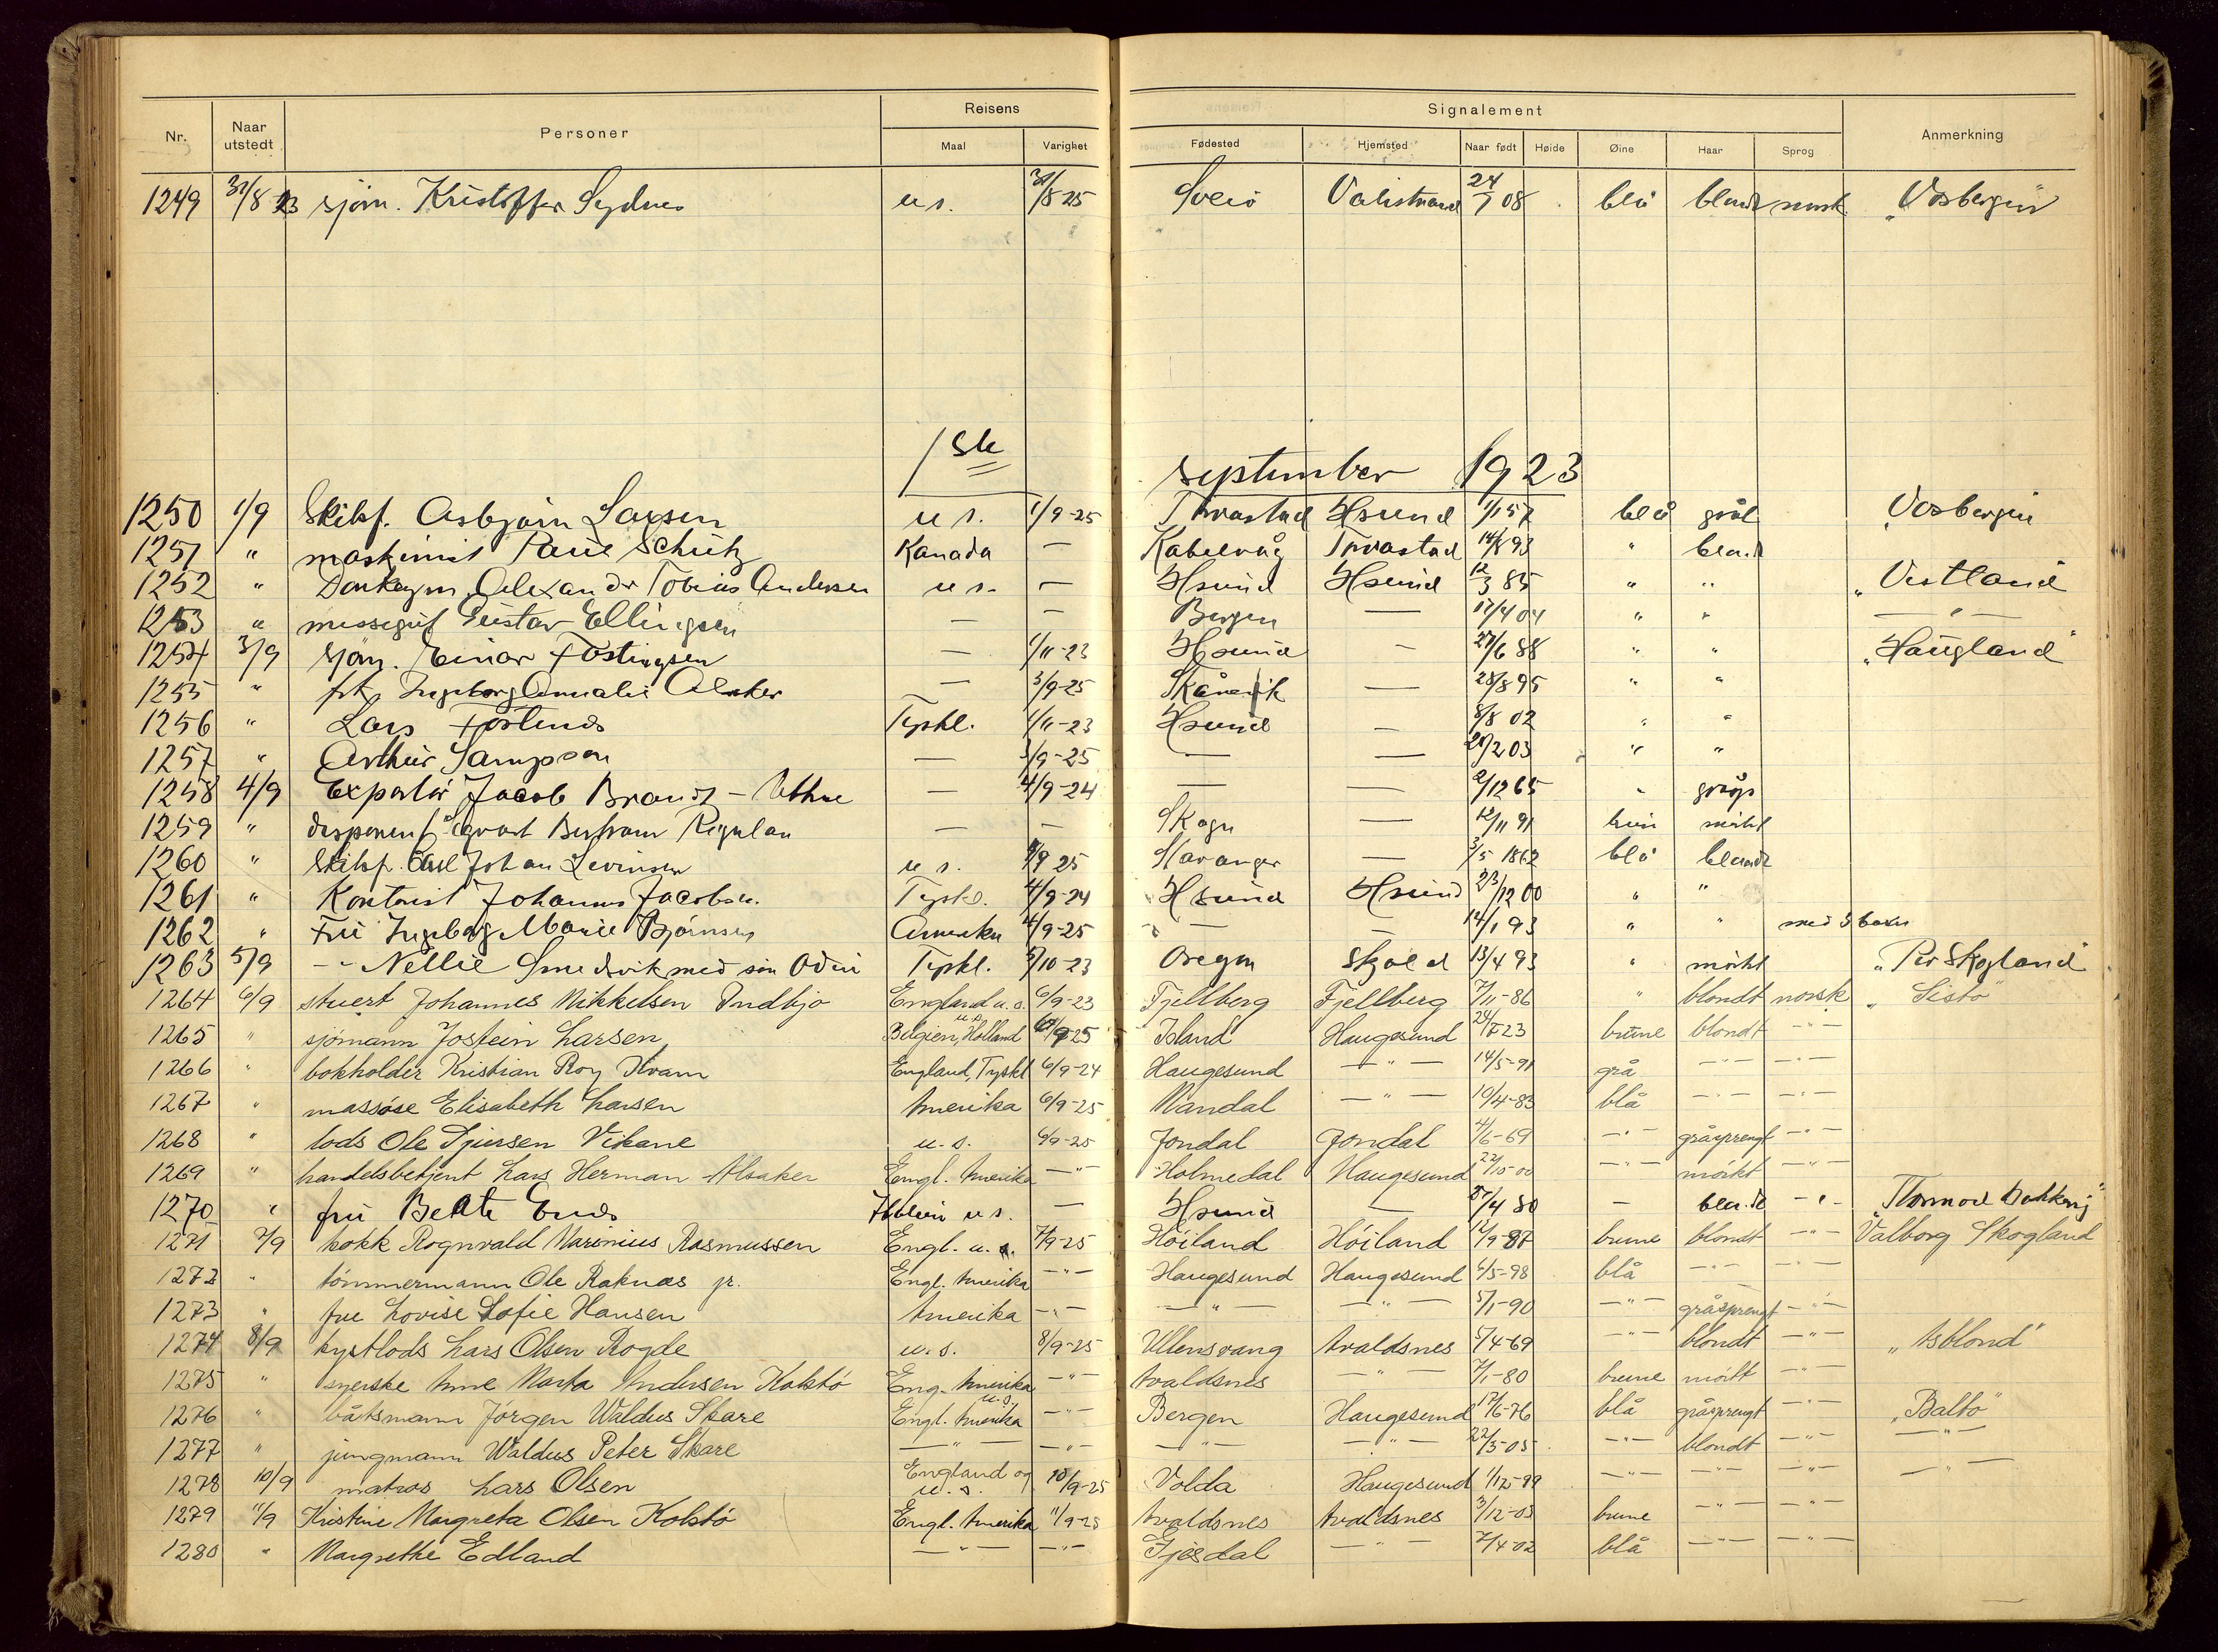 Nr. Naar utstedt Personer Reisens Maal Varighet Signalement Fødested Hjemsted Naar født Høide Øine Haar Sprog Anmerkning
1249 31/8 23 sjøm. Kristoffer Sydnes u s. 31/8-25 Sveio Valestrand 24/7 08 blå blondt norsk "Vosbergen"
september 1923
1250 1/9 Skibsf. Asbjørn Larsen u s. 1/9-25 Torvastad Hsund 1/1 57 blå grål Vosbergen
1251 " maskinist Schütz Kanada — Kabelvåg Torvastad 14/8 93 " blondt
1252 " Donkeym. Alexander Tobias Andersen u s. — Hsund Hsund 12/3 85 " " "Vestland"
1253 " messegut Gustav Ellingsen — — Bergen — 17/4 04 " " — " —
1254 3/9 sjøm. Einar Føstingsen — 1/11-23 Hsund — 27/6 88 " " "Haugland"
1255 " frk. Ingeborg Amalie Alsaker — 3/9-25 Skånevik — 28/8 95 " "
1256 " Lars Tyskl. 1/11-23 Hsund — 8/8 02 " "
1257 " Arthur Sampson — 3/9-25 — — 2/2 03 " "
1258 4/9 Exportør Jacob Brandt - — 4/9-24 — — 2/12 65 " gråsp
1259 " disponent Sigvart Bertram — — — 12/11 91 mørkt
1260 " Skibsf. Carl Johan Levinsen u s. 4/9 25 Stavanger — 3/5 1862 blå blondt
1261 " Kontorist Johannes Jacobsen. Tyskl. 4/9-24 Hsund Hsund 23/12 00 " "
1262 " Fru Ingeborg Marie Bjørnsen Amerika 4/9-25 — — 14/1 93 " " med 3 barn
1263 5/9 - " - Nellie Smedsvik med søn Odin Tyskl. 5/10-23 Oregon Skjold 13/4 93 " mørkt "Per Skogland"
1264 6/9 stuert Johannes Mikkelsen Indbjo England u. s. 6/9-23 Fjellberg Fjellberg 7/11-86 " blondt norsk "Sisto"
1265 " sjømann Jostein Larsen Belgien, Holland u. s. 6/9-25 Island Haugesund 24/7 23 brune blondt — " —
1266 " bokholder Kristian Roy Kvam England, Tyskl 6/9-24 Haugesund — " — 14/5-91 grå — " — — " —
1267 " massøse Elisabeth Larsen Amerika 6/9-25 Mandal — " — 10/4-83 blå — " — — " —
1268 " lods Ole Tjersen Vikane u. s. 6/9-25 Jondal Jondal 4/6-69 — " — gråsprengt — " —
1269 " handelsbetjent Lars Herman Alsaker Engl. Amerika — " — Holmedal Haugesund 22/10-00 — " — mørkt — " —
1270 " fru Beate Enes Italien u s. — Hsund — 27/4 80 — blondt - " - "Thormod Bakkevig"
1271 7/9 kokk Rognvald Marinius Rasmussen Engl. u. s. 7/9-25 Høiland Høiland 12/9-87 brune blondt — " — Valborg Skogland
1272 " tømmermann Ole Raknæs jr. Engl. Amerika — " — Haugesund Haugesund 6/5-98 blå — " — — " —
1273 " fru Lovise Sofie Hansen Amerika — " — — " — — " — 5/1-90 — " — gråsprengt — " —
1274 8/9 kystlods Lars Olsen Rogde u. s. 8/9-25 Ullensvang Avaldsnes 5/4-69 — " — blondt — " — "Asblond"
1275 " syerske Anne Marta Andersen Kolstø Eng. Amerika — " — Avaldsnes — " — 7/1-80 brune mørkt — " —
1276 " båtsmann Jörgen Waldus Skare Engl. Amerika u. s. — " — Bergen Haugesund 17/6-76 blå gråsprengt — " — "Balto"
1277 " jungmann Waldus Peter Skare — " — — " — — " — — " — 22/5-05 — " — blondt — " — — " —
1278 10/9 matros Lars Olsen England og u. s. 10/9-25 Volda Haugesund 1/12-99 — " — — " — — " — — " —
1279 11/9 Kristine Margreta Olsen Kolstø Engl. Amerika 11/9-25 Avaldsnes Avaldsnes 3/12-03 brune — " — — " —
1280 " Margrethe Edland — " — — " — Gjesdal — " — 7/4-02 blå — " — — " —